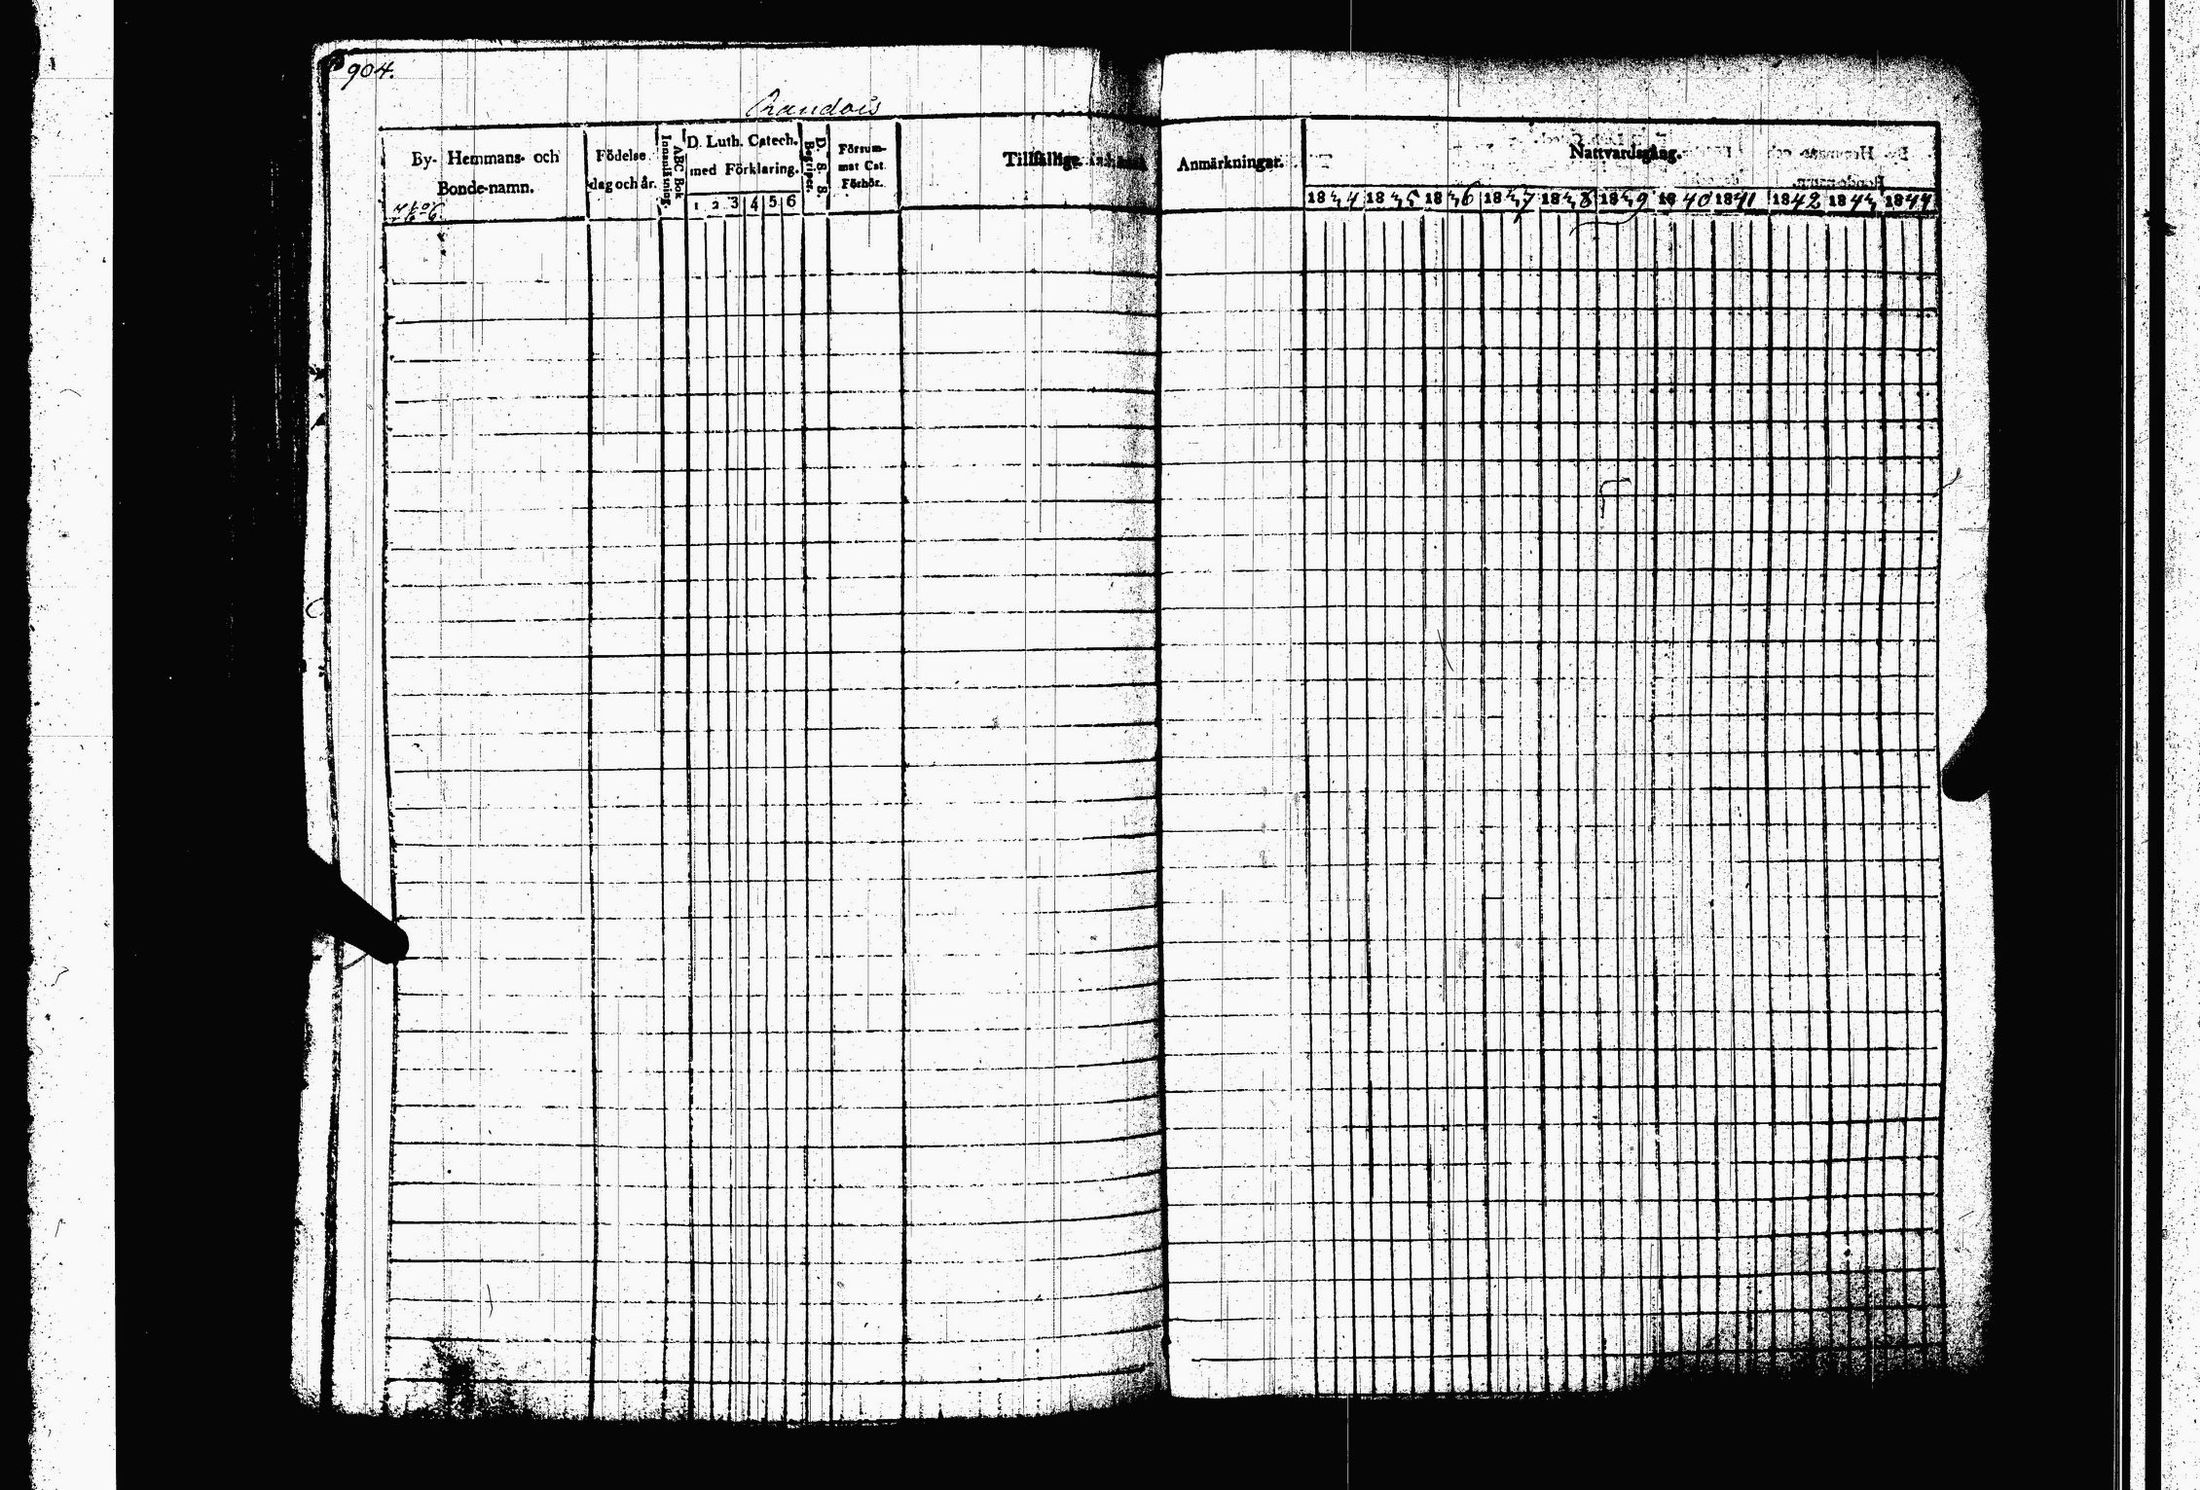 904.
Randois
By- Hemmans- och
Bonde-namn.
Födelse
dag och år.
Innanläsning.
ABC Bok
D. Luth. Catech.
med Förklaring.
1 2 3 4 5 6
D. S. S.
Begriper.
Försum-
mat Cat.
Förhör.
Tillfällige
Anmärkningar.
Nattvardsgång.
1834 1835 1836 1837 1838 1839 1840 1841 1842 1843 1844